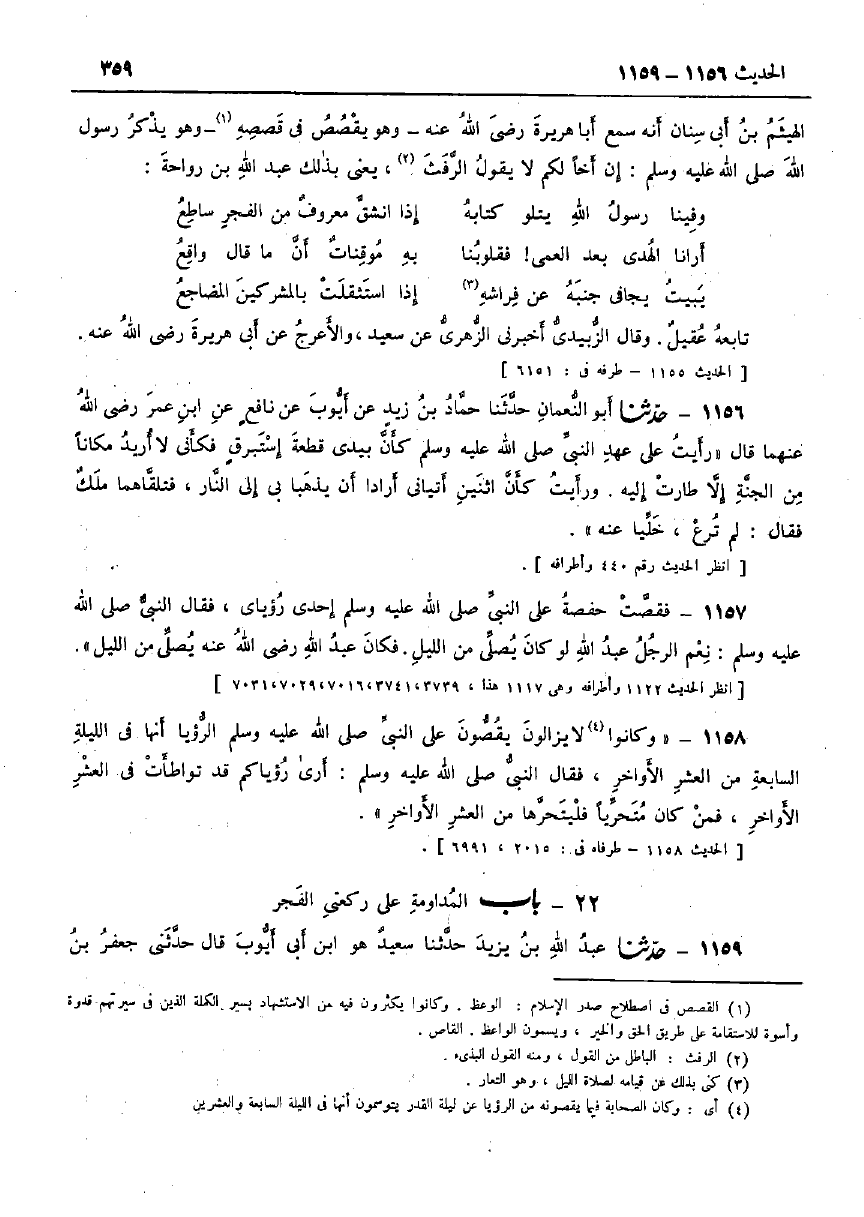 الحديث ١١٥٦ - ١١٥٩ ٣٥٩
الهيثَمُ بنُ أبى سِنان أنه سمع أبا هريرةَ رضىَ اللهُ عنه - وهو يقْصُصُ فى قَصصِهِ (١) - وهو يذْكرُ رسول
اللهَ صلى الله عليه وسلم : إن أخاً لكم لا يقولُ الرَّفَثَ (٢) ، يعنى بذٰلك عبد اللهِ بن رواحةَ :
وفِينا رسولُ اللهِ يتلو كتابهُ إذا انشقَّ معروفٌ من الفجرِ ساطِعُ
أرانا الهُدى بعد العمى! فقلوبُنا بهِ مُوقِناتٌ أنَّ ما قال واقِعُ
يَبيتُ يجافى جنبَهُ عن فِراشهِ (٣) إذا استَثقلَتْ بالمشركينَ المضاجعُ
تابعهُ عُقيلٌ . وقال الزُّبيدىُّ أخبرنى الزُّهرىُّ عن سعيد ، والأَعرجُ عن أبى هريرةَ رضى اللهُ عنه .
[ الحديث ١١٥٥ - طرفه فى : ٦١٥١ ]
١١٥٦ - حدّثنا أبو النُّعمانِ حدَّثَنا حمَّادُ بنُ زيدٍ عن أيُّوبَ عن نافعٍ عنِ ابنِ عمرَ رضى اللهُ
عنهما قال « رأيتُ على عهدِ النبىِّ صلى الله عليه وسلم كأنَّ بيدى قطعةَ إسْتَبرقٍ فكأنى لا أُريدُ مكاناً
مِن الجنَّةِ إلَّا طارتْ إليه . ورأيتُ كأنَّ اثنَينِ أتيانى أرادا أن يذهَبا بى إلى النَّار ، فتلقَّاهما ملَكٌ
فقال : لم تُرعْ ، خَلِّيا عنه » .
[ انظر الحديث رقم ٤٤٠ وأطرافه ] .
١١٥٧ - فقصَّتْ حفصةُ على النبىِّ صلى الله عليه وسلم إحدى رُؤياى ، فقال النبىُّ صلى الله
عليه وسلم : نِعْم الرجُلُ عبدُ اللهِ لو كانَ يُصلِّى من الليلِ . فكانَ عبدُ اللهِ رضى اللهُ عنه يُصلِّى من الليل » .
[ انظر الحديث ١١٢٢ وأطرافه وهى ١١١٧ هذا ، ٣٧٣٩، ٣٧٤١، ٧٠١٦، ٧٠٢٩، ٧٠٣١ ]
١١٥٨ - « وكانوا (٤) لا يزالونَ يقُصُّونَ على النبىِّ صلى الله عليه وسلم الرُّؤيا أنها فى الليلةِ
السابعةِ من العشرِ الأواخرِ ، فقال النبىُّ صلى الله عليه وسلم : أرىٰ رُؤياكم قد تواطأتْ فى العشْرِ
الأَواخرِ ، فمنْ كان مُتَحرِّياً فليْتَحرَّها من العشرِ الأَواخرِ » .
[ الحديث ١١٥٨ - طرفاه فى : ٢٠١٥ ، ٦٩٩١ ] .
٢٢ - باب المُداومةِ على ركعتىِ الفَجر
١١٥٩ - حدّثنا عبدُ اللهِ بنُ يزيدَ حدَّثنا سعيدٌ هو ابن أبى أيُّوبَ قال حدَّثَنى جعفرُ بنُ
(١) القصص فى اصطلاح صدر الإسلام : الوعظ . وكانوا يكثرون فيه من الاستشهاد بسير الكملة الذين فى سيرتهم قدوة
وأسوة للاستقامة على طريق الحق والخير ، ويسمون الواعظ . القاص .
(٢) الرفث : الباطل من القول ، ومنه القول البذىء .
(٣) كنى بذلك عن قيامه لصلاة الليل ، وهو التعار .
(٤) أى : وكان الصحابة فيما يقصونه من الرؤيا عن ليلة القدر يتوسمون أنها فى الليلة السابعة والعشرين